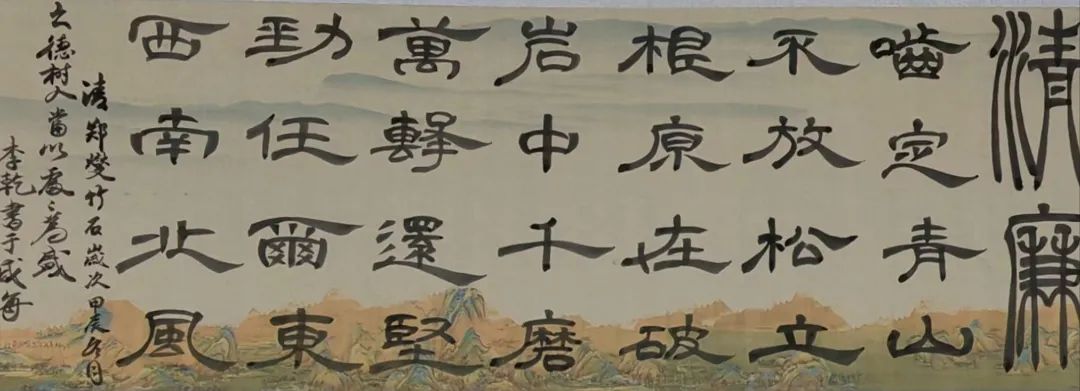 清廉
嚙定青山
不放松立
根原在破
岩中千磨
萬擊還堅
勁任爾東
西南北風
清鄭燮竹石歲次甲辰冬月
德树人當以為
李乾書于